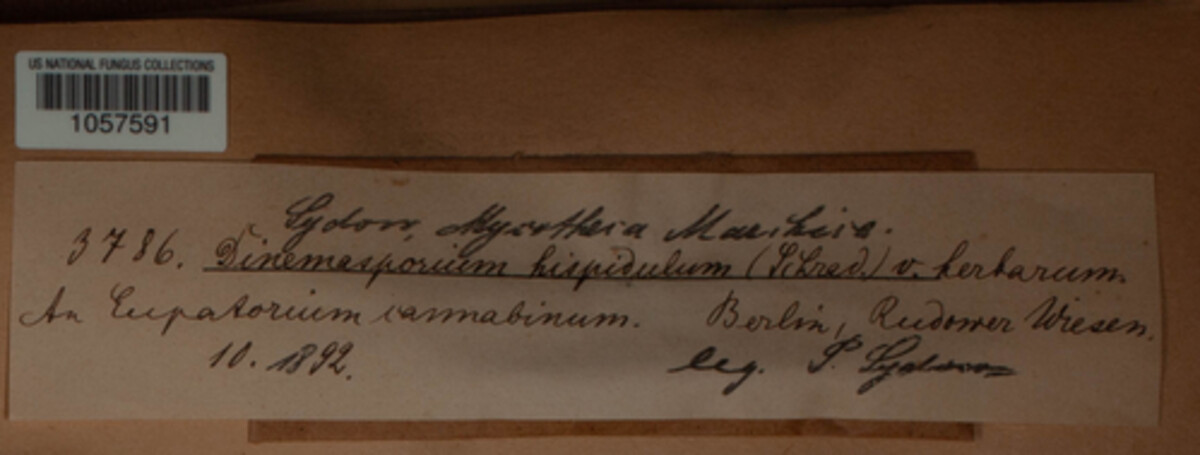 US NATIONAL FUNGUS COLLECTIONS
1057591
Sydow, Mycotheca Marchica.
3786. Dinemasporium hispidulum (Schrad.) v. herbarum.
An Eupatorium cannabinum. Berlin, Rudower Wiesen.
10. 1892. leg. P. Sydow